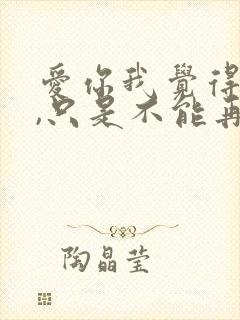 愛你我覺得
,只是不能再
陶晶莹